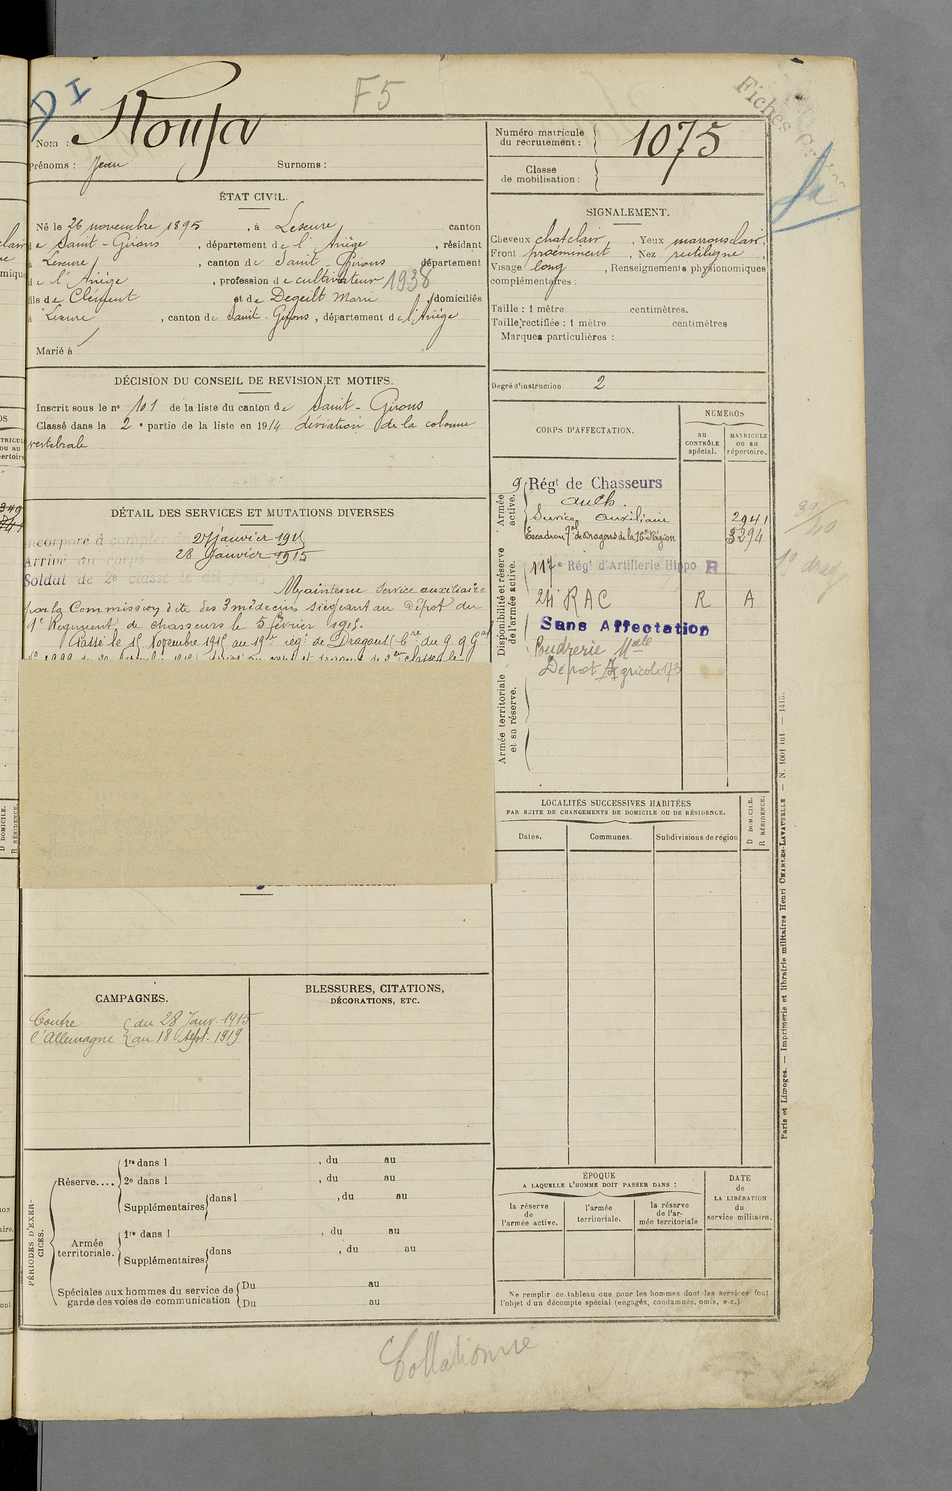 DI
F5
Nom :
Prénoms : Jean Surnom :
Numéro matricule du recrutement : 1075
Classe de mobilisation :
ÉTAT CIVIL.
Né le 26 novembre 1895, à Lescure, canton
de Saint-Girons, département de l'Ariège, résidant
à Lescure, canton de Saint-Girons département
de l'Ariège, profession de cultivateur 1938
fils de Clément et de Degeilt Marie domiciliés
à Lescure, canton de Saint-Girons, département de l'Ariège
Marié à
SIGNALEMENT.
Cheveux chat clair, Yeux marrons clair,
Front proéminent, Nez rectiligne,
Visage long, Renseignements physionomiques
complémentaires :
Taille : 1 mètre centimètres.
Taille rectifiée : 1 mètre centimètres
Marques particulières :
Degré d'instruction 2
DÉCISION DU CONSEIL DE REVISION ET MOTIFS.
Inscrit sous le n° 101 de la liste du canton de Saint-Girons
Classé dans la 2e partie de la liste en 1914 déviation de la colonne
vertebrale
CORPS D'AFFECTATION.
NUMÉROS
au CONTRÔLE spécial.
MATRICULE ou au répertoire.
Armée active.
9e Régt de Chasseurs
auch
Service Auxiliaire 2941
Escadron 7e de Dragons de la 16e Région 3294
Disponibilité et réserve de l'armée active.
117e Régt d'Artillerie Hippo R
24e RAC R A
Sans Affectation
Poudrerie Nale
Dépôt Agricole 173
Armée territoriale et sa réserve.
DÉTAIL DES SERVICES ET MUTATIONS DIVERSES
Incorporé à compter du 27 janvier 1915
Arrivé au corps le 28 Janvier 1915
Soldat de 2e classe le dit jour,
Maintenu Service auxiliaire
par la Commission dite des 3 médecins siégeant au Dépôt du
9e Régiment de chasseurs le 5 février 1915.
Passé le 15 Novembre 1915 au 19e rég. de Dragons
LOCALITÉS SUCCESSIVES HABITÉES
PAR SUITE DE CHANGEMENTS DE DOMICILE OU DE RÉSIDENCE.
Dates. Communes. Subdivisions de région
D DOMICILE.
R RÉSIDENCE.
CAMPAGNES.
Contre du 28 Janv. 1915
l'Allemagne au 18 Sept. 1919.
BLESSURES, CITATIONS,
DÉCORATIONS, ETC.
PÉRIODES D'EXERCICES.
Réserve....
1re dans l , du au
2e dans l , du au
Supplémentaires dans l , du au
Armée territoriale.
1re dans l , du au
Supplémentaires dans , du au
Spéciales aux hommes du service de garde des voies de communication
Du au
Du au
ÉPOQUE
A LAQUELLE L'HOMME DOIT PASSER DANS :
la réserve de l'armée active.
l'armée territoriale.
la réserve de l'armée territoriale
DATE de LA LIBÉRATION du service militaire.
Ne remplir ce tableau que pour les hommes dont les services font
l'objet d'un décompte spécial (engagés, condamnés, omis, e.c.).
Paris et Limoges. — Imprimerie et librairie militaires Henri CHARLES-LAVAUZELLE
Collationné